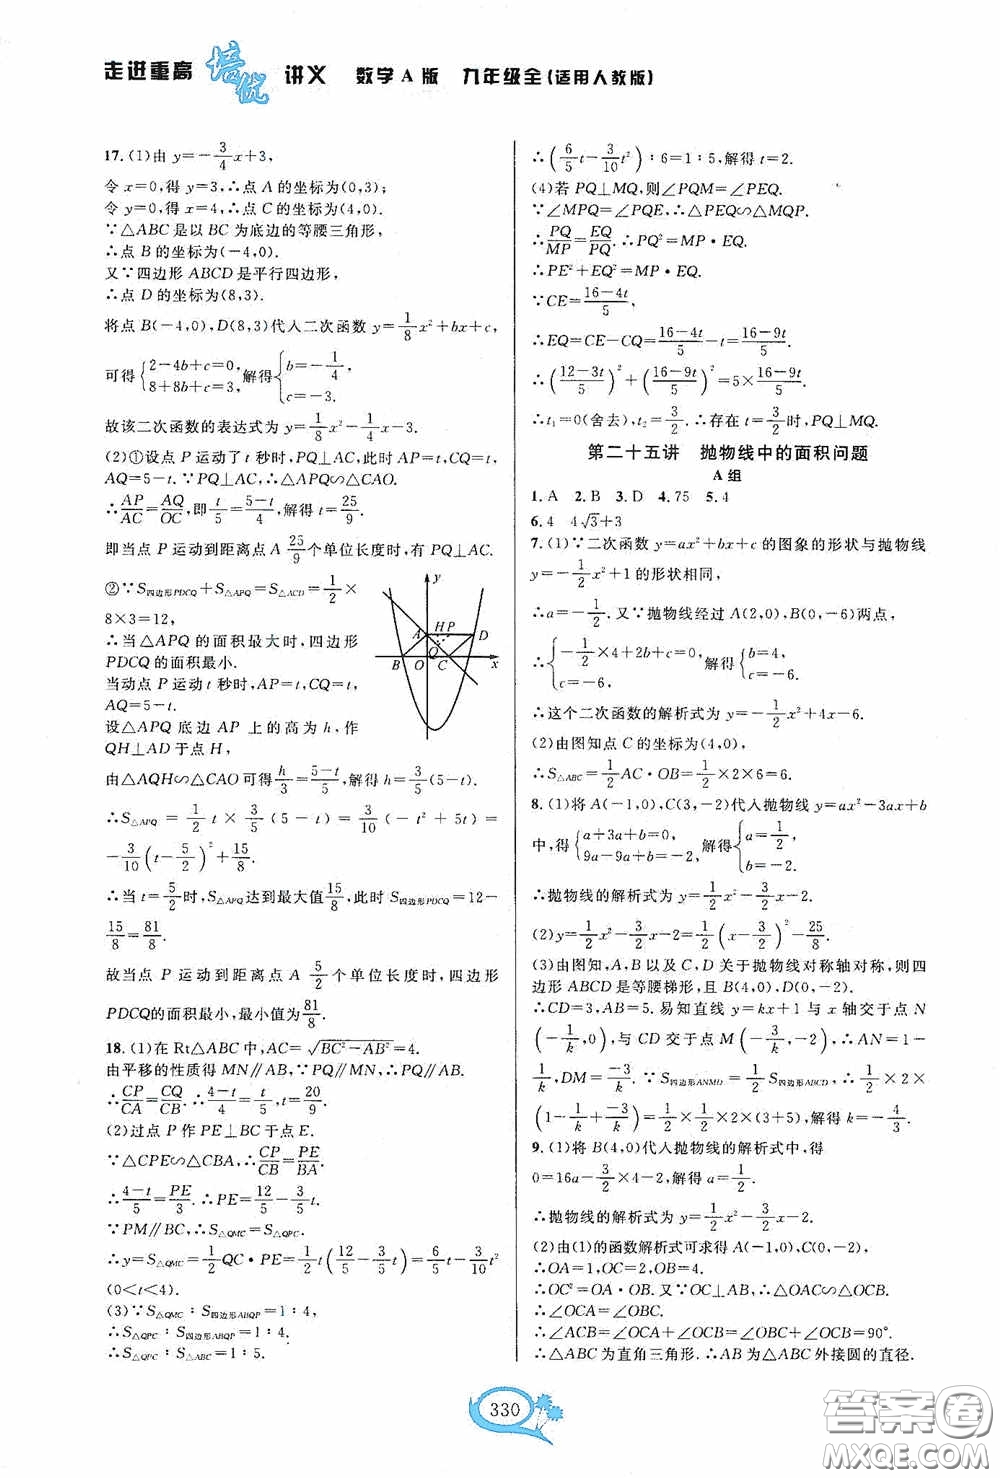 走进重高 培优 讲义 数学A版 九年级全(适用人教版)
17.(1)由 y=-3/4x+3,
令 x=0,得 y=3,∴点 A 的坐标为(0,3);
令 y=0,得 x=4,∴点 C 的坐标为(4,0).
∵△ABC 是以 BC 为底边的等腰三角形,
∴点 B 的坐标为(-4,0).
又∵四边形 ABCD 是平行四边形,
∴点 D 的坐标为(8,3).
将点 B(-4,0),D(8,3)代入二次函数 y=1/8x²+bx+c,
可得{2-4b+c=0, 8+8b+c=3, 解得{b=-1/4, c=-3.
故该二次函数的表达式为 y=1/8x²-1/4x-3.
(2)①设点 P 运动了 t 秒时,PQ⊥AC,此时 AP=t,CQ=t,
AQ=5-t.∵PQ⊥AC,∴△APQ∽△CAO.
∴AP/AC=AQ/OC,即t/5=(5-t)/4,解得 t=25/9.
即当点 P 运动到距离点 A 25/9个单位长度时,有 PQ⊥AC.
②∵S四边形PDCQ+S△APQ=S△ACD=1/2×
8×3=12,
∴当△APQ 的面积最大时,四边形
PDCQ 的面积最小.
当动点 P 运动 t 秒时,AP=t,CQ=t,
AQ=5-t.
设△APQ 底边 AP 上的高为 h,作
QH⊥AD 于点 H,
由△AQH∽△CAO 可得h/3=(5-t)/5,解得 h=3/5(5-t).
∴S△APQ=1/2t×3/5(5-t)=3/10(-t²+5t)=
-3/10(t-5/2)²+15/8.
∴当 t=5/2时,S△APQ达到最大值15/8,此时 S四边形PDCQ=12-
15/8=81/8.
故当点 P 运动到距离点 A 5/2个单位长度时,四边形
PDCQ的面积最小,最小值为81/8.
y
A H P D
Q
B O C x
18.(1)在 Rt△ABC 中,AC=√(BC²-AB²)=4.
由平移的性质得 MN∥AB,∵PQ∥MN,∴PQ∥AB.
∴CP/CA=CQ/CB.∴(4-t)/4=t/5,t=20/9.
(2)过点 P 作 PE⊥BC 于点 E.
∵△CPE∽△CBA,∴CP/CB=PE/BA.
∴(4-t)/5=PE/3.∴PE=12/5-3/5t.
∵PM∥BC,∴S△QMC=S△QPC.
∴y=S△QMC=1/2QC·PE=1/2t(12/5-3/5t)=6/5t-3/10t²
(0<t<4).
(3)∵S△QMC∶S四边形ABQP=1∶4,
∴S△QPC∶S四边形ABQP=1∶4.
∴S△QPC∶S△ABC=1∶5.
∴(6/5t-3/10t²)∶6=1∶5,解得 t=2.
(4)若 PQ⊥MQ,则∠PQM=∠PEQ.
∵∠MPQ=∠PQE,∴△PEQ∽△MQP.
∴PQ/MP=EQ/PQ.∴PQ²=MP·EQ.
∴PE²+EQ²=MP·EQ.
∵CE=(16-4t)/5,
∴EQ=CE-CQ=(16-4t)/5-t=(16-9t)/5.
∴((12-3t)/5)²+((16-9t)/5)²=5×(16-9t)/5.
∴t₁=0(舍去),t₂=3/2.∴存在 t=3/2时,PQ⊥MQ.
第二十五讲 抛物线中的面积问题
A组
1.A 2.B 3.D 4.75 5.4
6.4 4√3+3
7.(1)∵二次函数 y=ax²+bx+c 的图象的形状与抛物线
y=-1/2x²+1 的形状相同,
∴a=-1/2.又∵抛物线经过 A(2,0),B(0,-6)两点,
∴{-1/2×4+2b+c=0, c=-6, 解得{b=4, c=-6,
∴这个二次函数的解析式为 y=-1/2x²+4x-6.
(2)由图知点 C 的坐标为(4,0),
∴S△ABC=1/2AC·OB=1/2×2×6=6.
8.(1)将 A(-1,0),C(3,-2)代入抛物线 y=ax²-3ax+b
中,得{a+3a+b=0, 9a-9a+b=-2, 解得{a=1/2, b=-2.
∴抛物线的解析式为 y=1/2x²-3/2x-2.
(2)y=1/2x²-3/2x-2=1/2(x-3/2)²-25/8.
(3)由图知,A,B 以及 C,D 关于抛物线对称轴对称,则四
边形 ABCD 是等腰梯形,且 B(4,0),D(0,-2).
∴CD=3,AB=5.易知直线 y=kx+1 与 x 轴交于点 N
(-1/k,0),与 CD 交于点 M(-3/k,-2),∴AN=1-
1/k,DM=-3/k.∵S四边形ANMD=1/2S四边形ABCD,∴1/2×2×
(1-1/k+-3/k)=1/2×1/2×2×(3+5),解得 k=-4/3.
9.(1)将 B(4,0)代入抛物线的解析式中,得
0=16a-3/2×4-2,解得 a=1/2.
∴抛物线的解析式为 y=1/2x²-3/2x-2.
(2)由(1)的函数解析式可求得 A(-1,0),C(0,-2).
∴OA=1,OC=2,OB=4.
∴OC²=OA·OB.又∵OC⊥AB,∴△OAC∽△OCB.
∴∠OCA=∠OBC.
∴∠ACB=∠OCA+∠OCB=∠OBC+∠OCB=90°.
∴△ABC为直角三角形.∴AB为△ABC 外接圆的直径.
330
答案圈
MXQE.COM